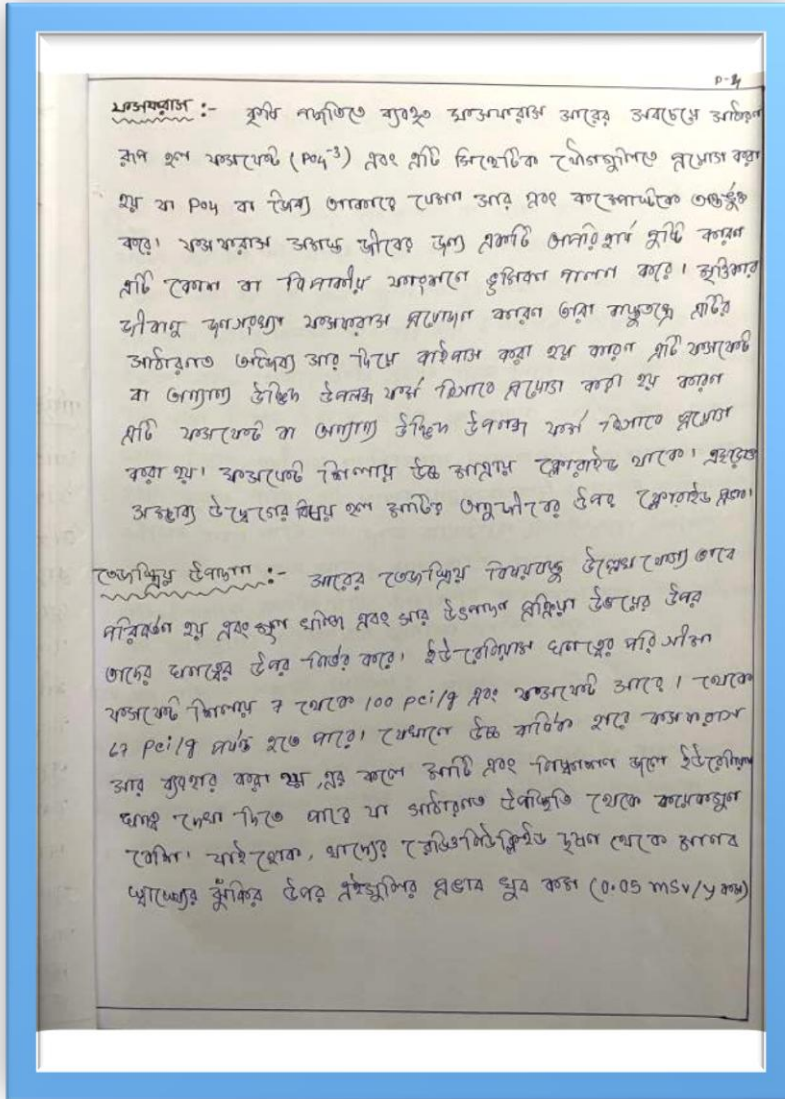 P-4
ফসফরাস :- কৃষি পদ্ধতিতে ব্যবহৃত ফসফরাস সারের সবচেয়ে সাধারণ
রূপ হল ফসফেট (PO4⁻³) এবং এটি সিন্থেটিক যৌগগুলিতে প্রয়োগ করা
হয় যা PO4 বা জৈব্য আকারে যেমন সার এবং কম্পোস্টকে অন্তর্ভুক্ত
করে। ফসফরাস সমস্ত জীবের জন্য একটি অপরিহার্য পুষ্টি কারণ
এটি কোশ বা বিপাকীয় ফাংশনে ভূমিকা পালন করে। মৃত্তিকার
জীবানু জনসংখ্যা ফসফরাস প্রয়োজন কারণ তারা বাস্তুতন্ত্রে মাটির
সাধারণত অজৈব্য সার দিয়ে বাইপাস করা হয় কারণ এটি ফসফেট
বা অন্যান্য উদ্ভিদ উপলব্ধ ফর্ম হিসাবে প্রয়োগ করা হয় কারণ
এটি ফসফেট বা অন্যান্য উদ্ভিদ উপলব্ধ ফর্ম হিসাবে প্রয়োগ
করা হয়। ফসফেট শিলায় উচ্চ মাত্রায় ফ্লোরাইড থাকে।
সম্ভাব্য উদ্বেগের বিষয় হল মাটির অনুজীবের উপর ফ্লোরাইড প্রভাব।
তেজস্ক্রিয় উপাদান :- সারের তেজস্ক্রিয় বিষয়বস্তু উল্লেখযোগ্য ভাবে
পরিবর্তন হয় এবং মূল খনিজ এবং সার উৎপাদন প্রক্রিয়া উভয়ের উপর
তাদের ঘনত্বের উপর নির্ভর করে। ইউরেনিয়াম ঘনত্বের পরিসীমা
ফসফেট শিলায় 7 থেকে 100 pci/g এবং ফসফেট সারে। থেকে
67 pci/g পর্যন্ত হতে পারে। যেখানে উচ্চ বার্ষিক হারে ফসফরাস
সার ব্যবহার করা হয়, এর ফলে মাটি এবং নিষ্কাশন জলে ইউরেনিয়াম
ঘনত্ব দেখা দিতে পারে যা সাধারণত উপস্থিতি থেকে কয়েকগুন
বেশি। যাই হোক, খাদ্যের রেডিওনিউক্লিইড দূষণ থেকে মানব
স্বাস্থ্যের ঝুঁকির উপর এইগুলির প্রভাব খুব কম (0.05 mSv/y কম)